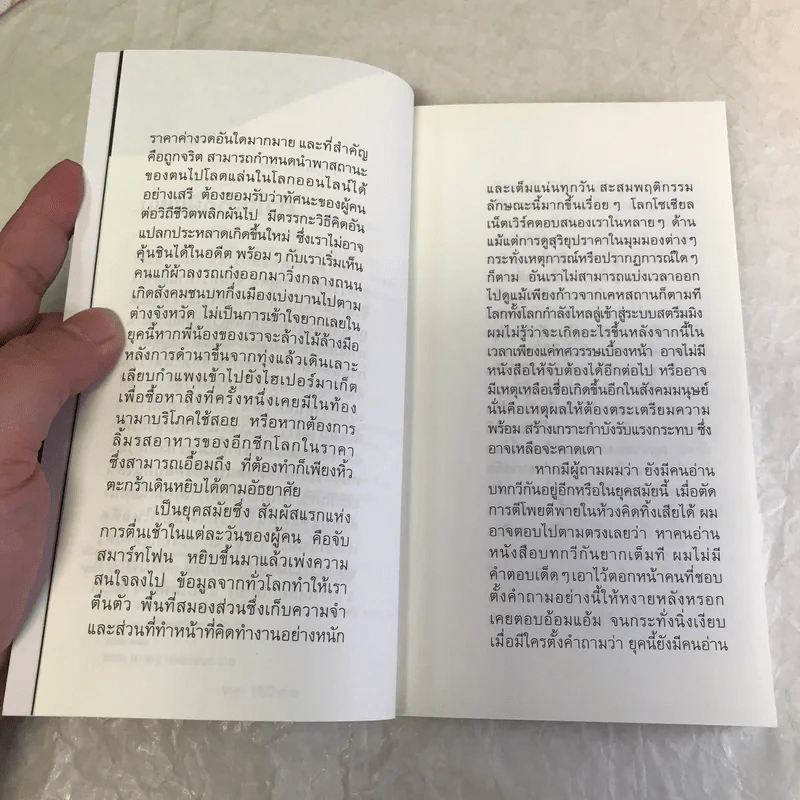 ราคาค่างวดอันใดมากมาย และที่สำคัญ
คือถูกจริต สามารถกำหนดนำพาสถานะ
ของตนไปโลดแล่นในโลกออนไลน์ได้
อย่างเสรี ต้องยอมรับว่าทัศนะของผู้คน
ต่อวิถีชีวิตพลิกผันไป มีตรรกะวิธีคิดอัน
แปลกประหลาดเกิดขึ้นใหม่ ซึ่งเราไม่อาจ
คุ้นชินได้ในอดีต พร้อมๆ กับเราเริ่มเห็น
คนแก้ผ้าลงรถเก๋งออกมาวิ่งกลางถนน
เกิดสังคมชนบทกึ่งเมืองเบ่งบานไปตาม
ต่างจังหวัด ไม่เป็นการเข้าใจยากเลยใน
ยุคนี้หากพี่น้องของเราจะล้างไม้ล้างมือ
หลังการดำนาขึ้นจากทุ่งแล้วเดินเลาะ
เลียบกำแพงเข้าไปยังไฮเปอร์มาเก็ต
เพื่อซื้อหาสิ่งที่ครั้งหนึ่งเคยมีในท้อง
นามาบริโภคใช้สอย หรือหากต้องการ
ลิ้มรสอาหารของอีกซีกโลกในราคา
ซึ่งสามารถเอื้อมถึง ที่ต้องทำก็เพียงหิ้ว
ตะกร้าเดินหยิบได้ตามอัธยาศัย
เป็นยุคสมัยซึ่ง สัมผัสแรกแห่ง
การตื่นเช้าในแต่ละวันของผู้คน คือจับ
สมาร์ทโฟน หยิบขึ้นมาแล้วเพ่งความ
สนใจลงไป ข้อมูลจากทั่วโลกทำให้เรา
ตื่นตัว พื้นที่สมองส่วนซึ่งเก็บความจำ
และส่วนที่ทำหน้าที่คิดทำงานอย่างหนัก
และเต็มแน่นทุกวัน สะสมพฤติกรรม
ลักษณะนี้มากขึ้นเรื่อยๆ โลกโซเชียล
เน็ตเวิร์คตอบสนองเราในหลายๆ ด้าน
แม้แต่การดูสุริยุปราคาในมุมมองต่างๆ
กระทั่งเหตุการณ์หรือปรากฏการณ์ใดๆ
ก็ตาม อันเราไม่สามารถแบ่งเวลาออก
ไปดูแม้เพียงก้าวจากเคหสถานก็ตามที
โลกทั้งโลกกำลังไหลลู่เข้าสู่ระบบสตรีมมิง
ผมไม่รู้ว่าจะเกิดอะไรขึ้นหลังจากนี้ใน
เวลาเพียงแค่ทศวรรษเบื้องหน้า อาจไม่มี
หนังสือให้จับต้องได้อีกต่อไป หรืออาจ
มีเหตุเหลือเชื่อเกิดขึ้นอีกในสังคมมนุษย์
นั่นคือเหตุผลให้ต้องตระเตรียมความ
พร้อม สร้างเกราะกำบังรับแรงกระทบ ซึ่ง
อาจเหลือจะคาดเดา
หากมีผู้ถามผมว่า ยังมีคนอ่าน
บทกวีกันอยู่อีกหรือในยุคสมัยนี้ เมื่อตัด
การตีโพยตีพายในห้วงคิดทิ้งเสียได้ ผม
อาจตอบไปตามตรงเลยว่า หาคนอ่าน
หนังสือบทกวีกันยากเต็มที ผมไม่มี
คำตอบเด็ดๆ เอาไว้ตอกหน้าคนที่ชอบ
ตั้งคำถามอย่างนี้ให้หงายหลังหรอก
เคยตอบอ้อมแอ้ม จนกระทั่งนิ่งเงียบ
เมื่อมีใครตั้งคำถามว่า ยุคนี้ยังมีคนอ่าน